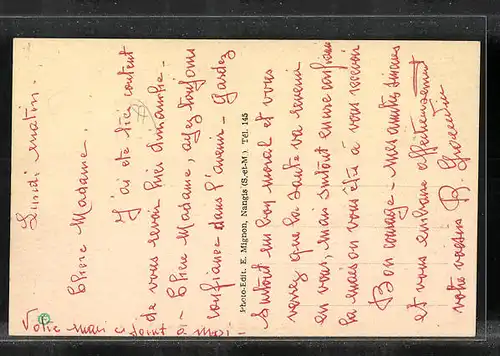 Lundi matin.
Chère Madame.
J'ai été très content
de vous revoir hier dimanche -
- Chère Madame, ayez toujours
confiance dans l'avenir - Gardez
Photo-Edit. E. Mignon, Nangis (S.-et-M.) Tél. 145
surtout un bon moral et vous
verrez que la santé va revenir
en vous, mais surtout encore confiance
la maison vous êté à vous revoir
Bon courage - mes amitiés sincères
et vous embrasse affectueusement
votre B.
Votre mari se joint à moi -